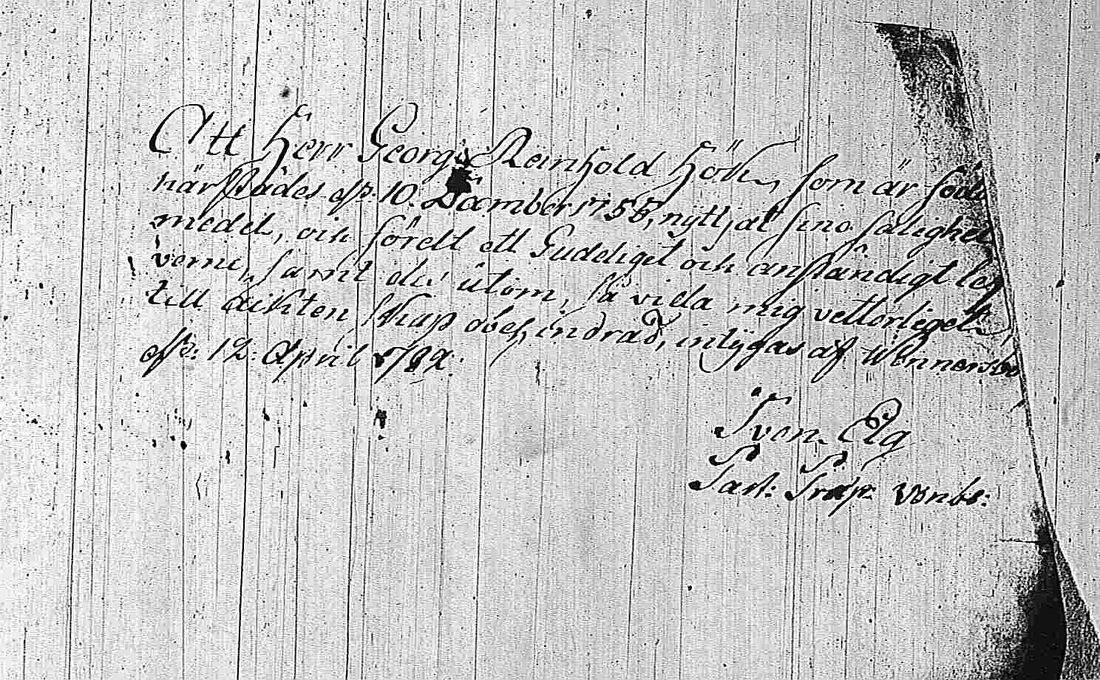 Att Herr Georg Reinhold Höök, som är född
härstädes d. 10. December 1758, nyttjat sine salighets
medel, och fördt ett Gudeligit och anständigt lef
verne, samt des utom, så vida mig vetterligit,
till ächtenskap obehindrad, intygas af Wennersbo
d. 12. April
Sven Elg
Past: Præp. Venbs: